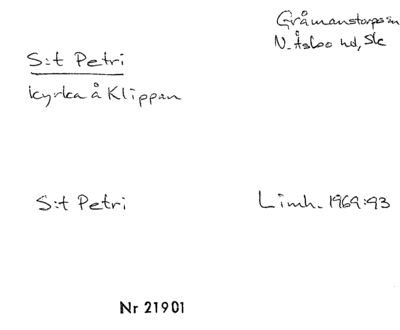 Gråmanstorps sn
N. Åsbo hd, Sk
S:t Petri
kyrka å Klippan
S:t Petri
Limh. 1969:93
Nr 21901